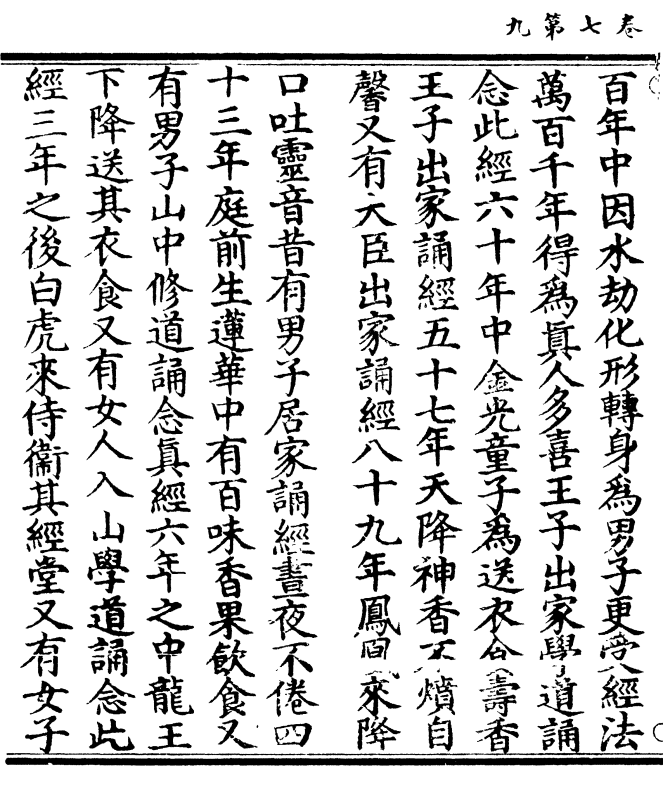 卷七第九
百年中因水劫化形轉身爲男子更受經法
萬百千年得爲眞人多喜王子出家學道誦
念此經六十年中金光童子爲送衣食壽香
王子出家誦經五十七年天降神香不燌自
馨又有大臣出家誦經八十九年鳳凰來降
口吐靈音昔有男子居家誦經晝夜不倦四
十三年庭前生蓮華中有百味香果飲食又
有男子山中修道誦念眞經六年之中龍王
下降送其衣食又有女人入山學道誦念此
經三年之後白虎來侍衞其經堂又有女子